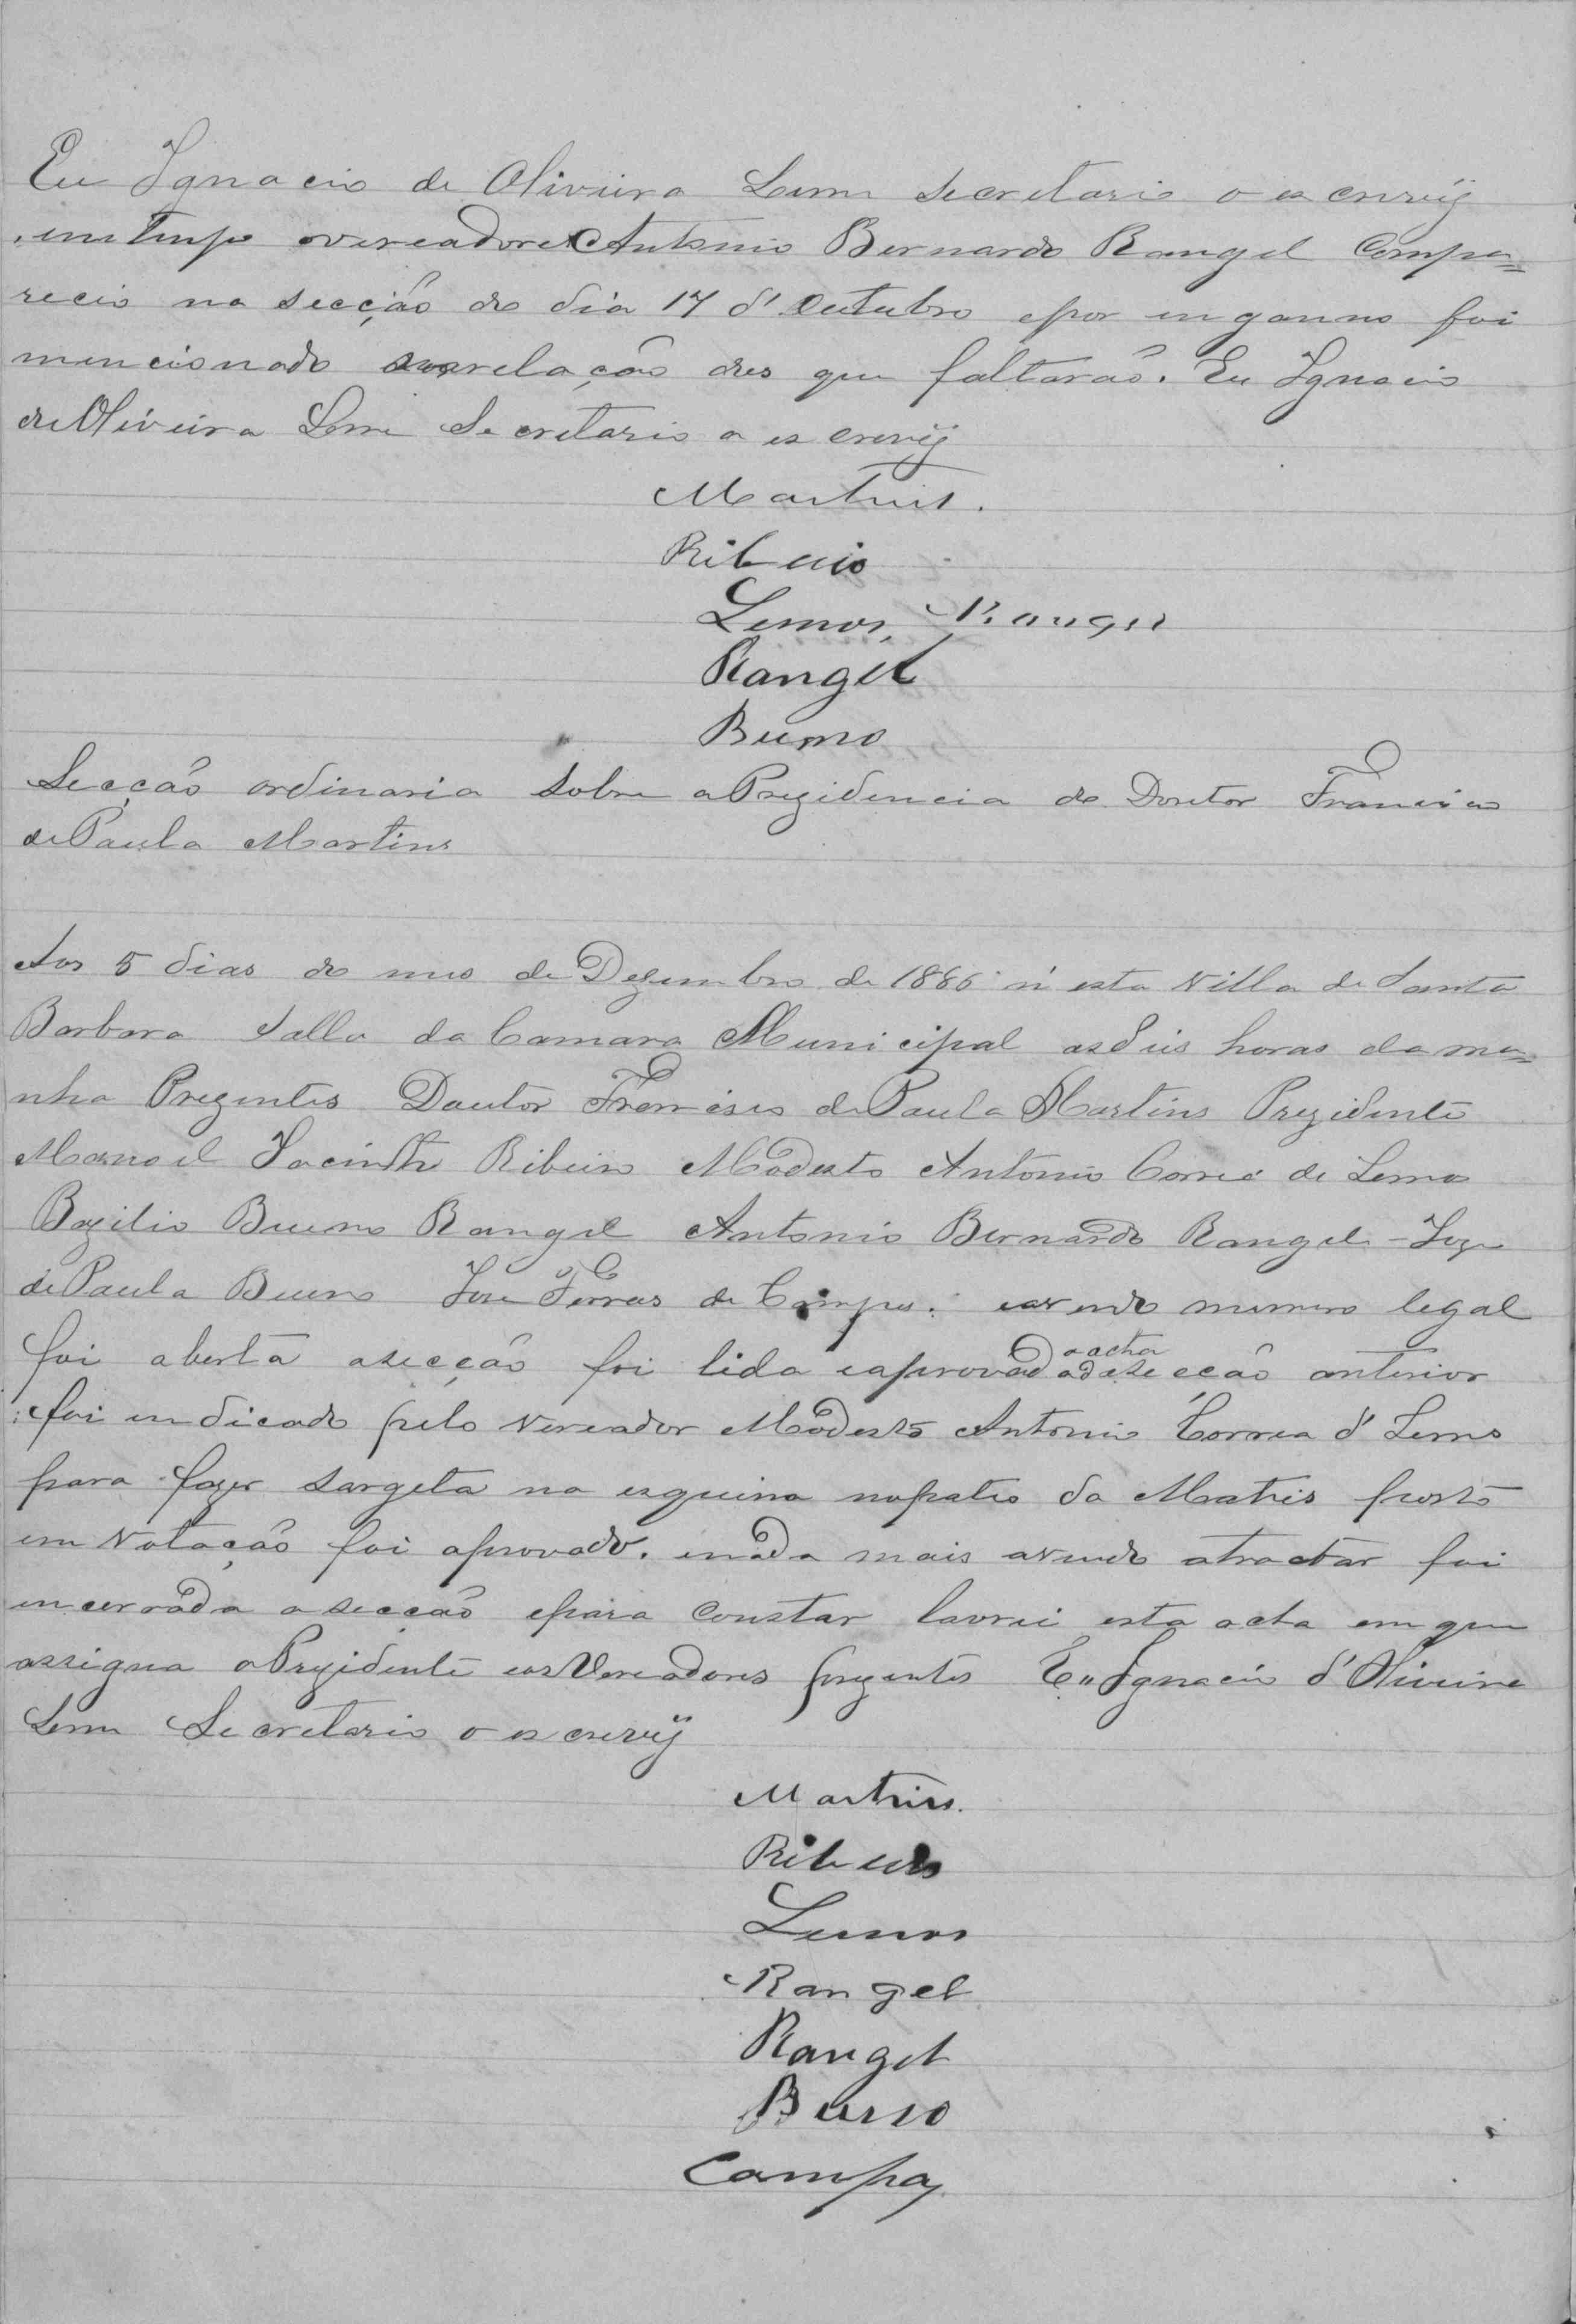 Eu Ignacio de Oliveira Leme Secretario o escrevÿ
, em tempo overeadore Antonio Bernardo Rangel Compa=
recio na secção do dia 17 d'Outubro epor inganno foi
mencionado relação dos que faltarão. Eu Ignacio
de Oliveira Leme Secretario o escrevÿ
Martins.
Ribeiro
Lemos, Rangel
Rangel
Bueno
Secção ordinaria sobre aPrezidencia do Doutor Francisco
de Paula Martins
Aos 5 dias do mes de Dezembro de 1886 n'esta Villa de Santa
Barbara Salla da Camara Municipal asdeis horas da ma=
nha Prezentes Doutor Francisco de Paula Martins Prezidente
Manoel Jacintho Ribeiro Modesto Antonio Correa de Lemos
Bazilio Bueno Rangel Antonio Bernardo Rangel - Joze
de Paula Bueno Jose Ferras de Campos. avendo numero legal
foi aberta asecção foi lida eaprovada aacta dasecção anterior
foi indicado pelo Vereador Modesto Antonio Correa d'Lemos
para fazer sargeta na esquina nopateo da Matris posto
em Votação foi aprovado. enada mais avendo atractar foi
encerrada asecção epara Constar lavrei esta acta em que
assigna oPrezidente eosVereadores prezentes Eu Ignacio d'Oliveira
Leme Secretario o escrevÿ
Martins.
Ribeiro
Lemos
Rangel
Rangel
Bueno
Campos